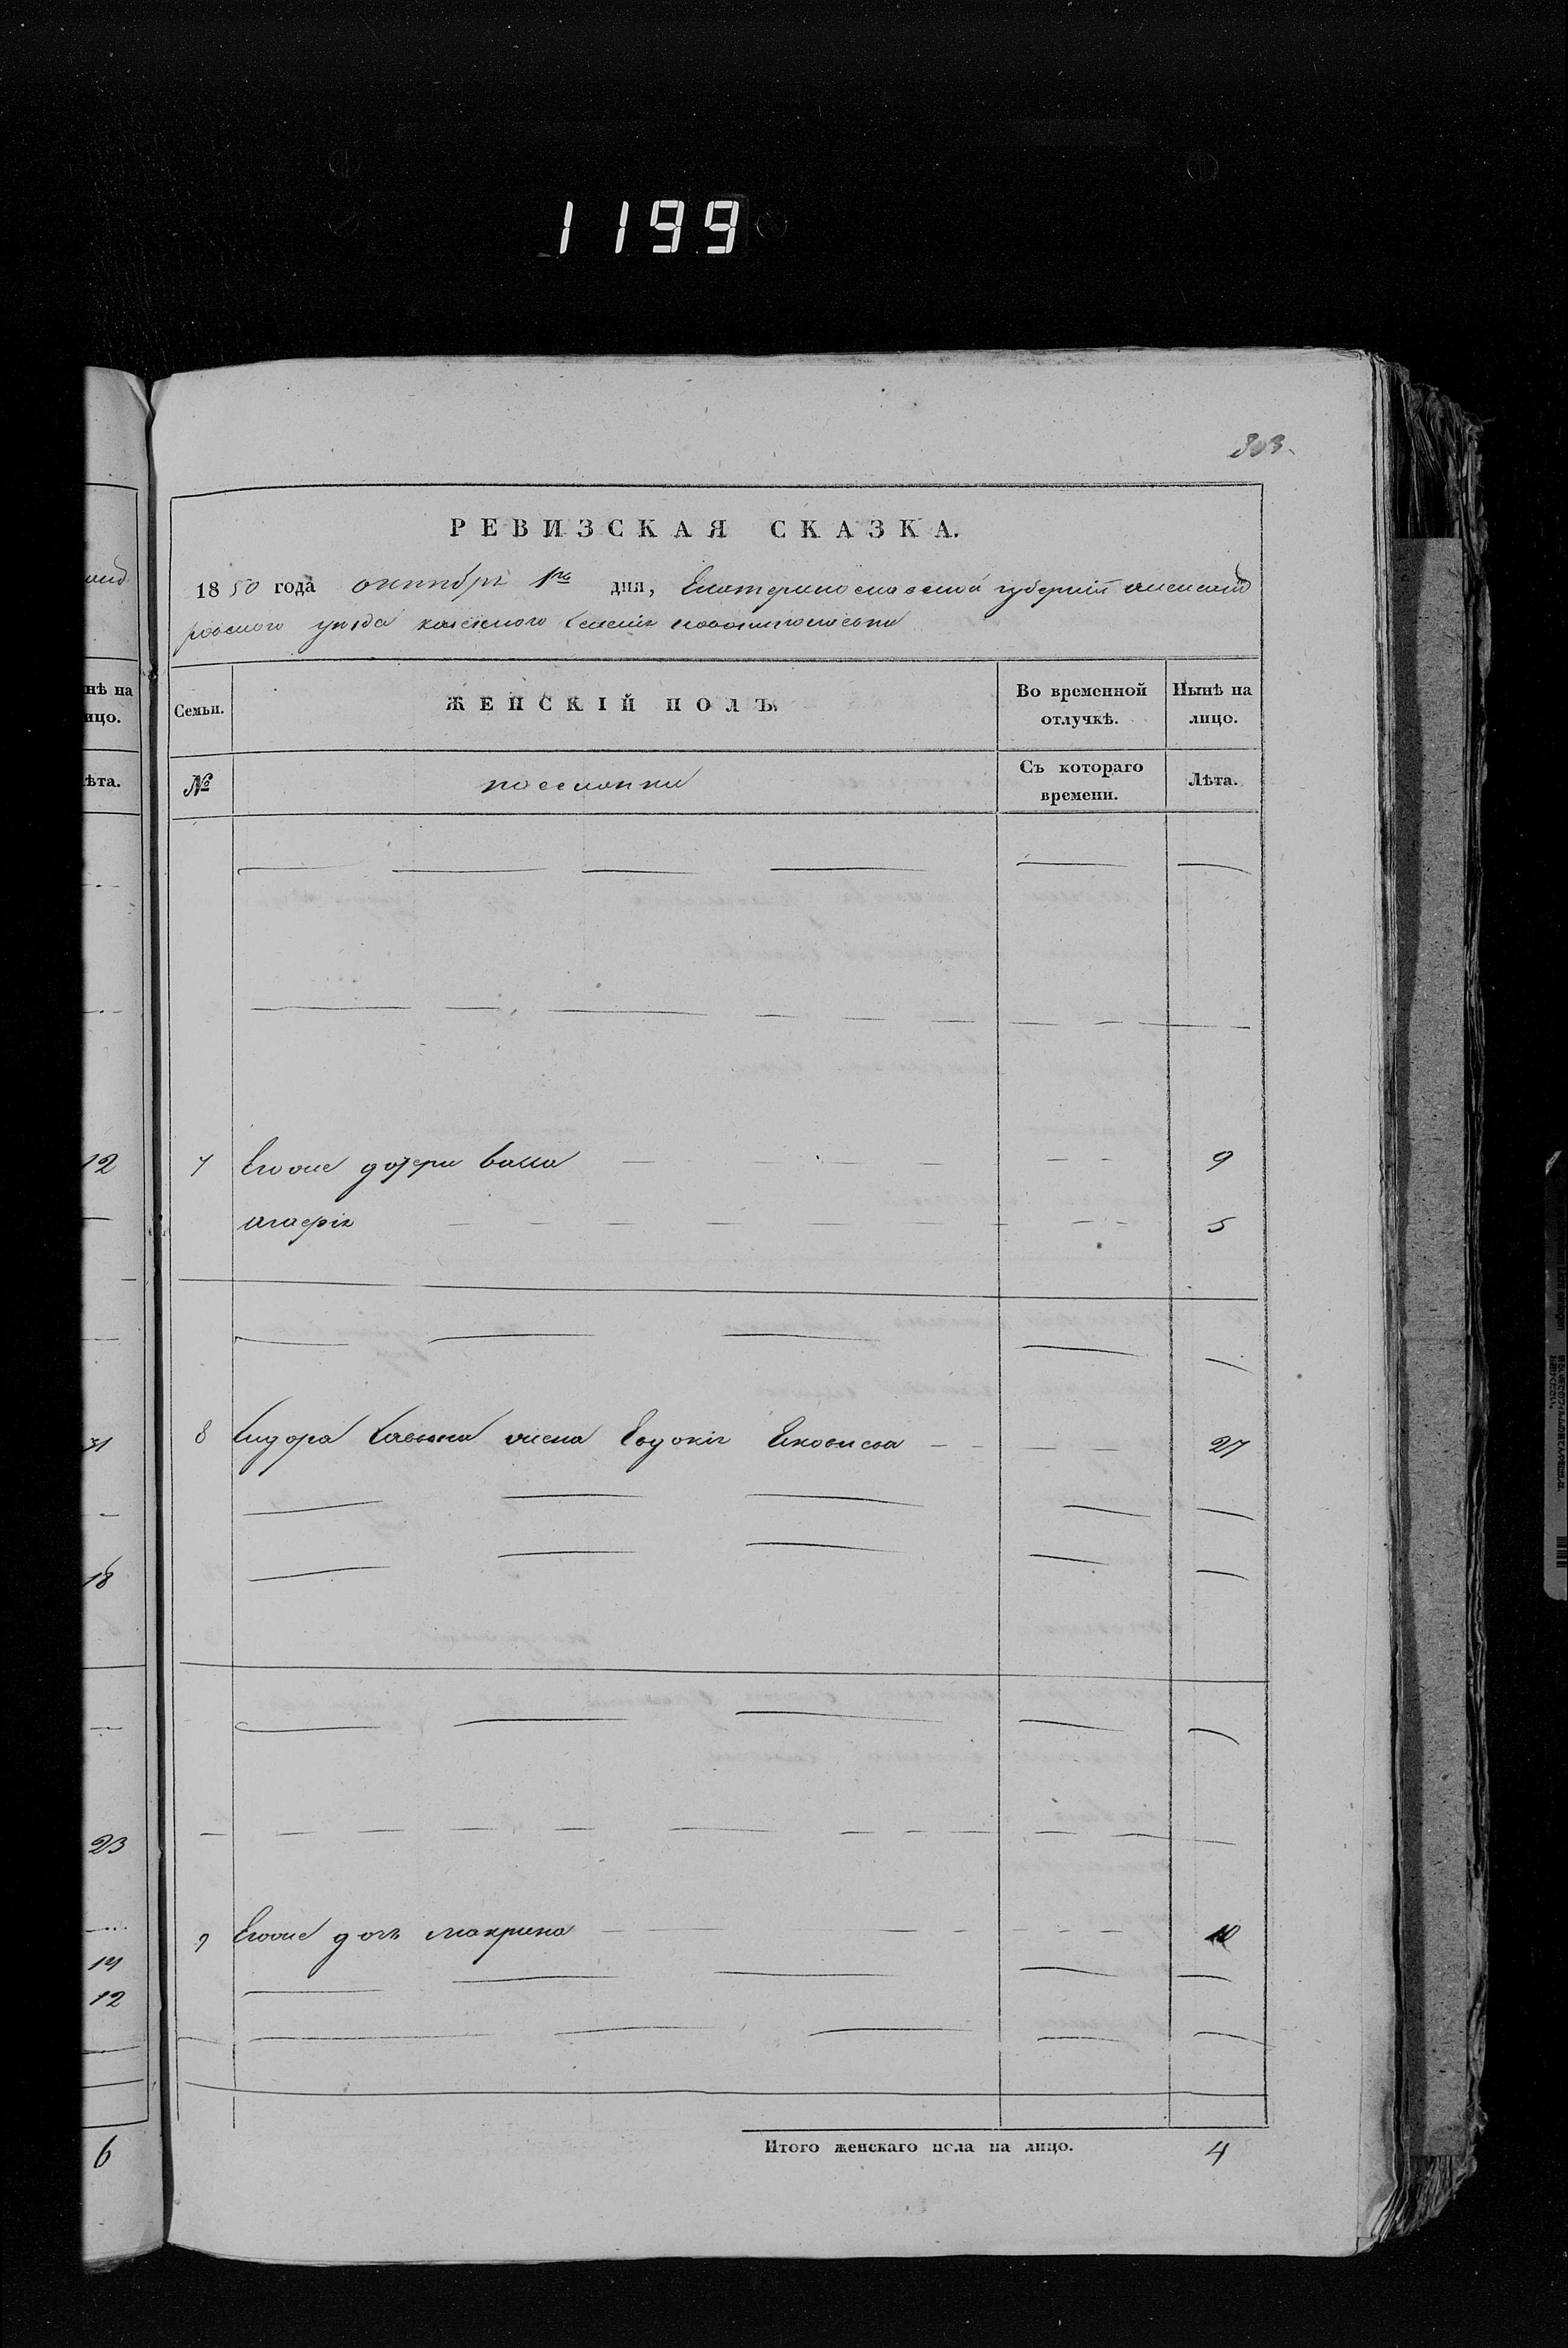 1199
303.
РЕВИЗСКАЯ СКАЗКА.
1850 года октября 1го дня, Екатеринославской губернии александ
ровского уезда казенного Селения
Семьи.
ЖЕНСКІЙ ПОЛЪ.
Во временной
отлучкѣ.
Нынѣ на
лицо.
№
поселянки
Съ котораго
времени.
Лѣта.
7 Егоже дочери Васса 9
агафія 5
8 Сидора Савина жена Евдокія 27
9 Егоже дочь макрина 10
Итого женскаго пола на лицо. 4
нѣ на
ицо.
ѣта.
12
31
18
23
14
12
6